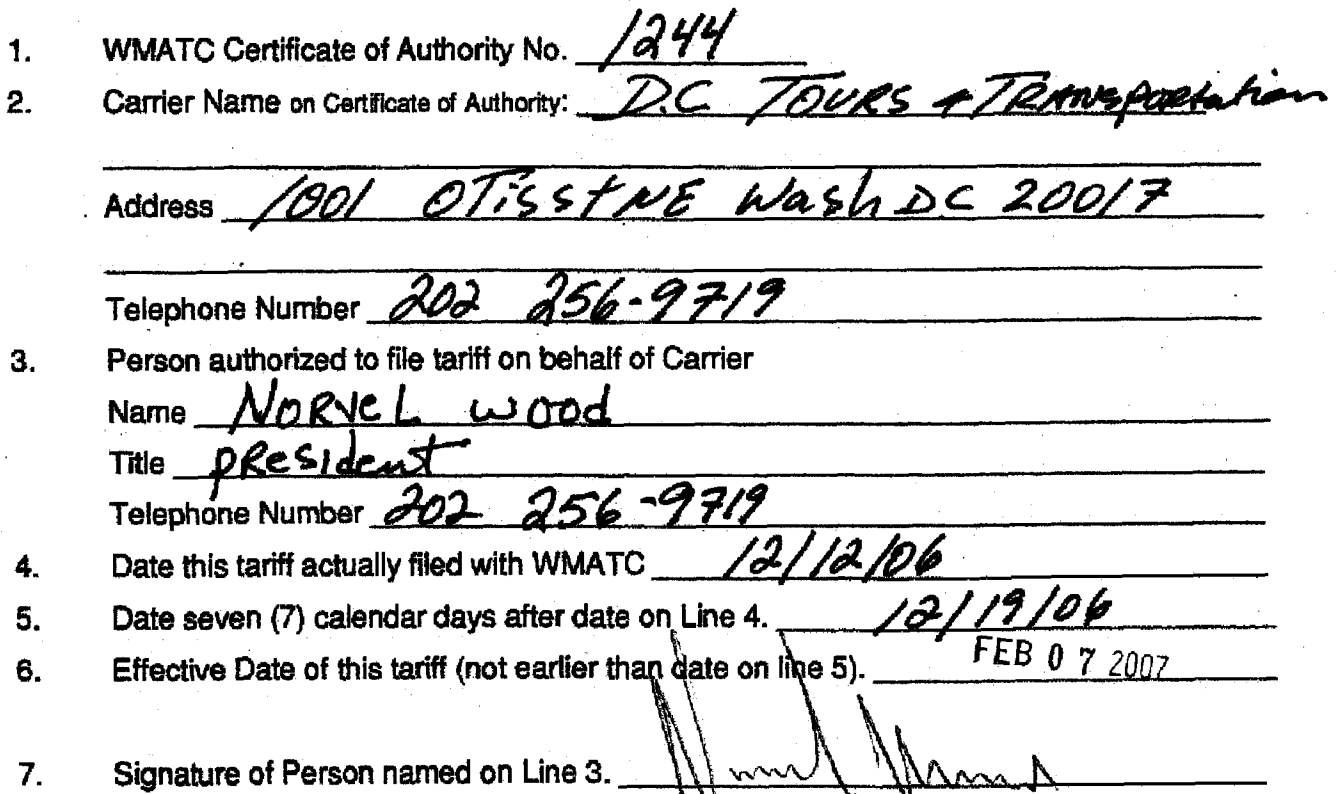 1. WMATC Certificate of Authority No. 1244
2. Carrier Name on Certificate of Authority: D.C TOURS + TRANSPORtation
Address 1001 OTis st NE Wash DC 20017
Telephone Number 202 256-9719
3. Person authorized to file tariff on behalf of Carrier
Name NORVEL wood
Title pResident
Telephone Number 202 256-9719
4. Date this tariff actually filed with WMATC 12/12/06
5. Date seven (7) calendar days after date on Line 4. 12/19/06
6. Effective Date of this tariff (not earlier than date on line 5). FEB 07 2007
7. Signature of Person named on Line 3.